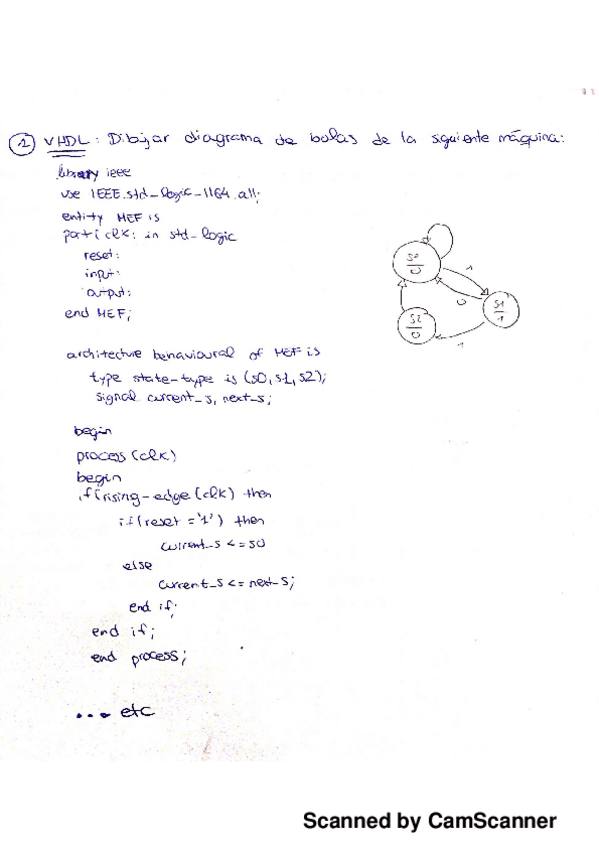 1 VHDL: Dibujar diagrama de bolas de la siguiente máquina:
library ieee
use IEEE.std_logic_1164.all;
entity MEF is
port( clk: in std_logic
reset:
input:
output:
end MEF;
S0
0
1
0
S1
1
S2
0
1
architecture behavioural of MEF is
type state-type is (s0, s1, s2);
signal current_s, next_s;
begin
process (clk)
begin
if(rising-edge(clk) then
if(reset = '1') then
current_s <= s0
else
current_s <= next_s;
end if;
end if;
end process;
.... etc
Scanned by CamScanner